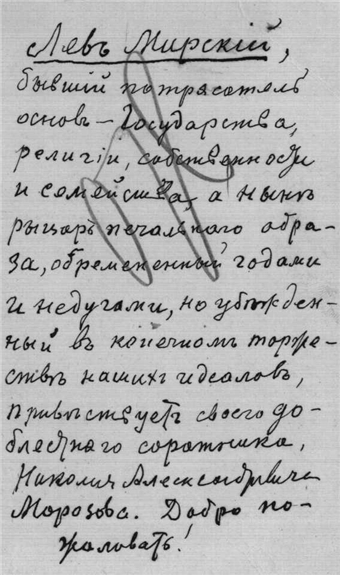 Левъ Мирскій,
бывшій потрясатель
основъ – Государства,
религіи, собственности
и семейства, а нынѣ
рыцарь печальнаго обра-
за, обремененный годами
и недугами, но убѣжден-
ный въ конечномъ торже-
ствѣ нашихъ идеаловъ,
привѣтствуетъ своего до-
блестнаго соратника,
Николая Александровича
Морозова. Добро по-
жаловать!